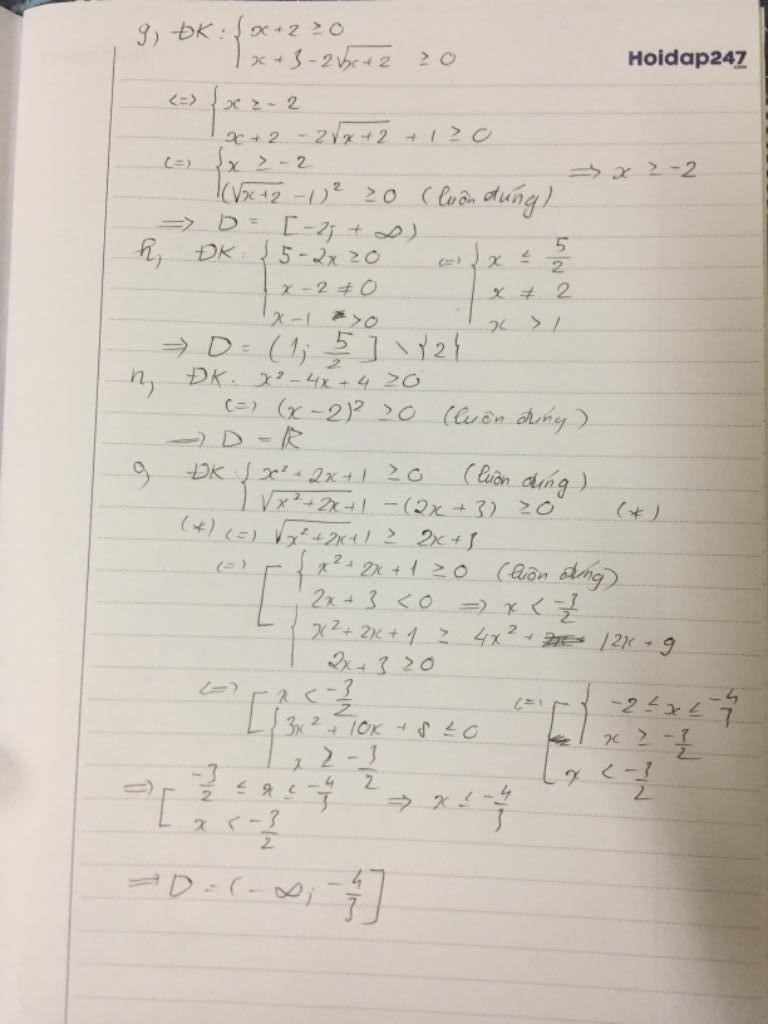 g, ĐK: { x+2 ≥ 0
x + 3 - 2√x+2 ≥ 0
Hoidap247.com
<=> { x ≥ -2
x+2 - 2√x+2 + 1 ≥ 0
<=> { x ≥ -2 => x ≥ -2
(√x+2 - 1)² ≥ 0 (luôn đúng)
=> D = [-2; +∞)
h, ĐK: { 5 - 2x ≥ 0 <=> { x ≤ 5/2
x - 2 ≠ 0 x ≠ 2
x - 1 > 0 x > 1
=> D = (1; 5/2] \ {2}
n, ĐK: x² - 4x + 4 ≥ 0
<=> (x - 2)² ≥ 0 (luôn đúng)
=> D = ℝ
g ĐK: { x² + 2x + 1 ≥ 0 (luôn đúng)
√x²+2x+1 - (2x + 3) ≥ 0 (*)
(*) <=> √x²+2x+1 ≥ 2x+3
<=> [ { x² + 2x + 1 ≥ 0 (luôn đúng)
2x + 3 < 0 => x < -3/2
{ x² + 2x + 1 ≥ 4x² + 12x + 9
2x + 3 ≥ 0
<=> [ x < -3/2 <=> [ { -2 ≤ x ≤ -4/3
{ 3x² + 10x + 8 ≤ 0 x ≥ -3/2
x ≥ -3/2 x < -3/2
=> [ -3/2 ≤ x ≤ -4/3 => x ≤ -4/3
x < -3/2
=> D = (-∞; -4/3]